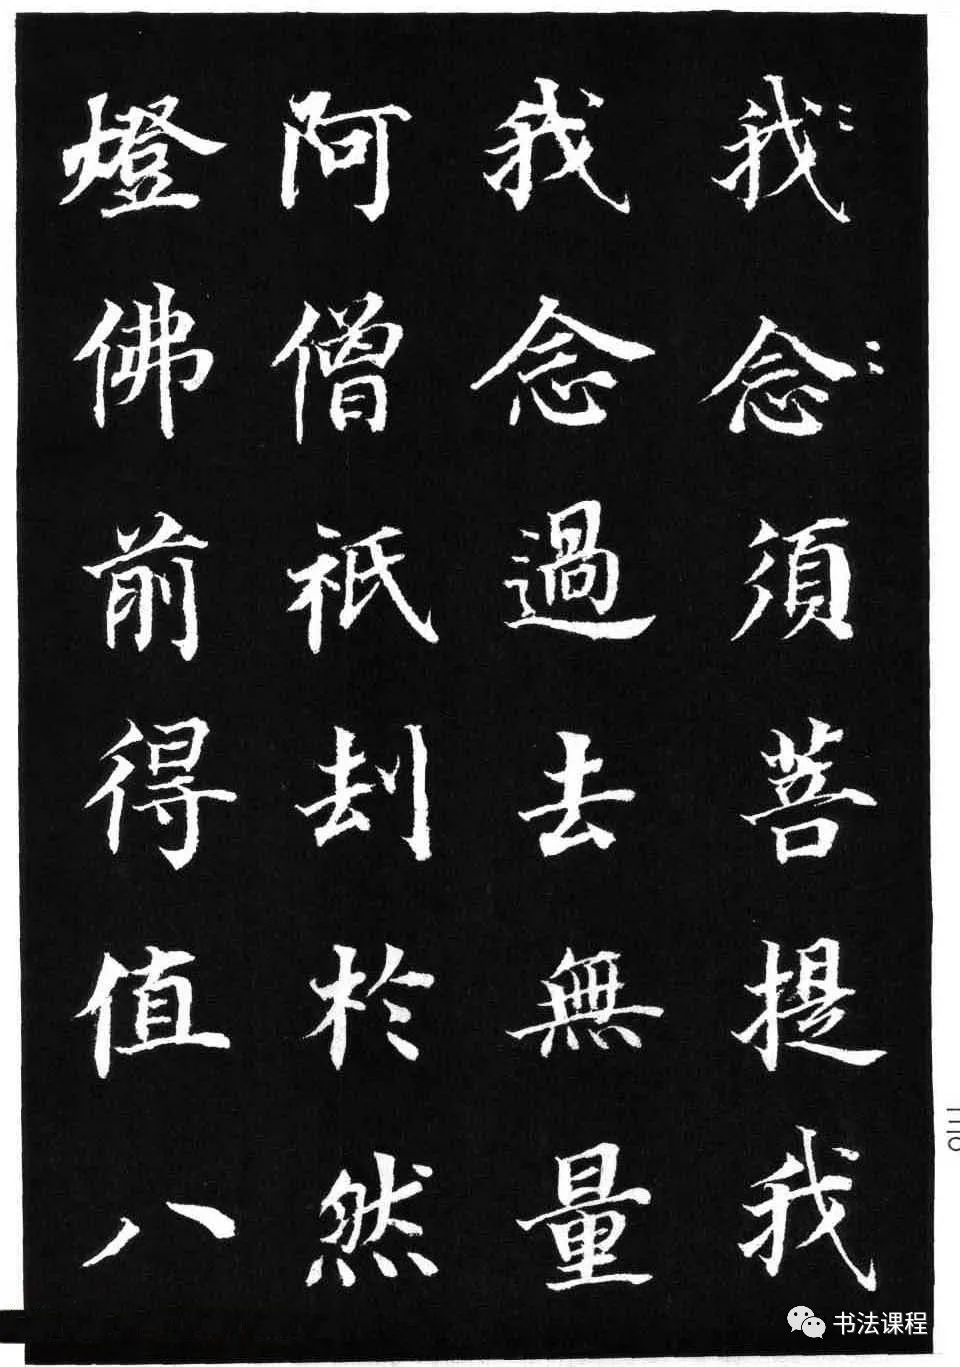 我念須菩提我
我念過去無量
阿僧祇刦於然
燈佛前得值八
一一〇
书法课程